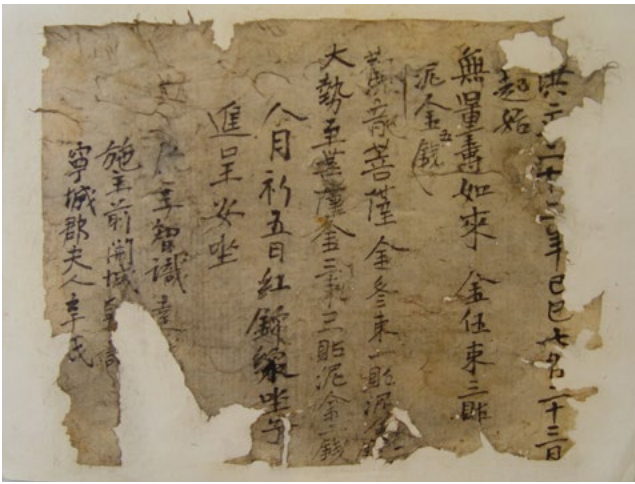 洪武二十二年己巳七月二十三日
起始
無量壽如來 金伍束三貼
泥金五錢
菩薩 金叅束一貼泥金
大勢至菩薩金三束三貼泥金二錢
八月初五日紅錦坐子
進呈安坐
智識
施主前開城
寧城郡夫人李氏